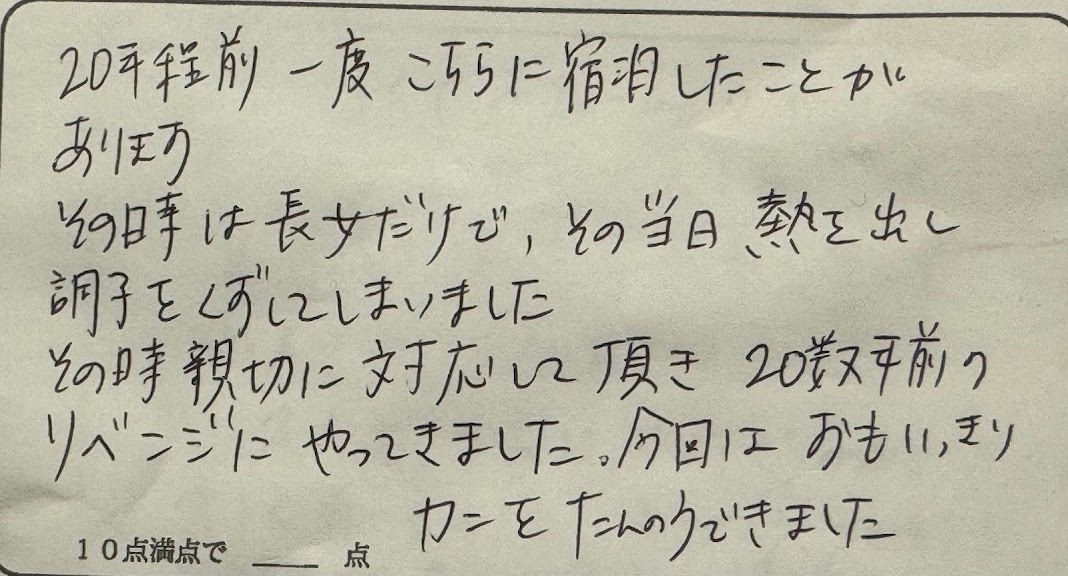 20年程前 一度 こちらに宿泊したことが
あります
その時は長女だけで、その当日 熱を出し
調子をくずしてしまいました
その時親切に対応して頂き 20数年前の
リベンジに やってきました。今回は おもいっきり
カニを たんのうできました
10点満点で ___ 点